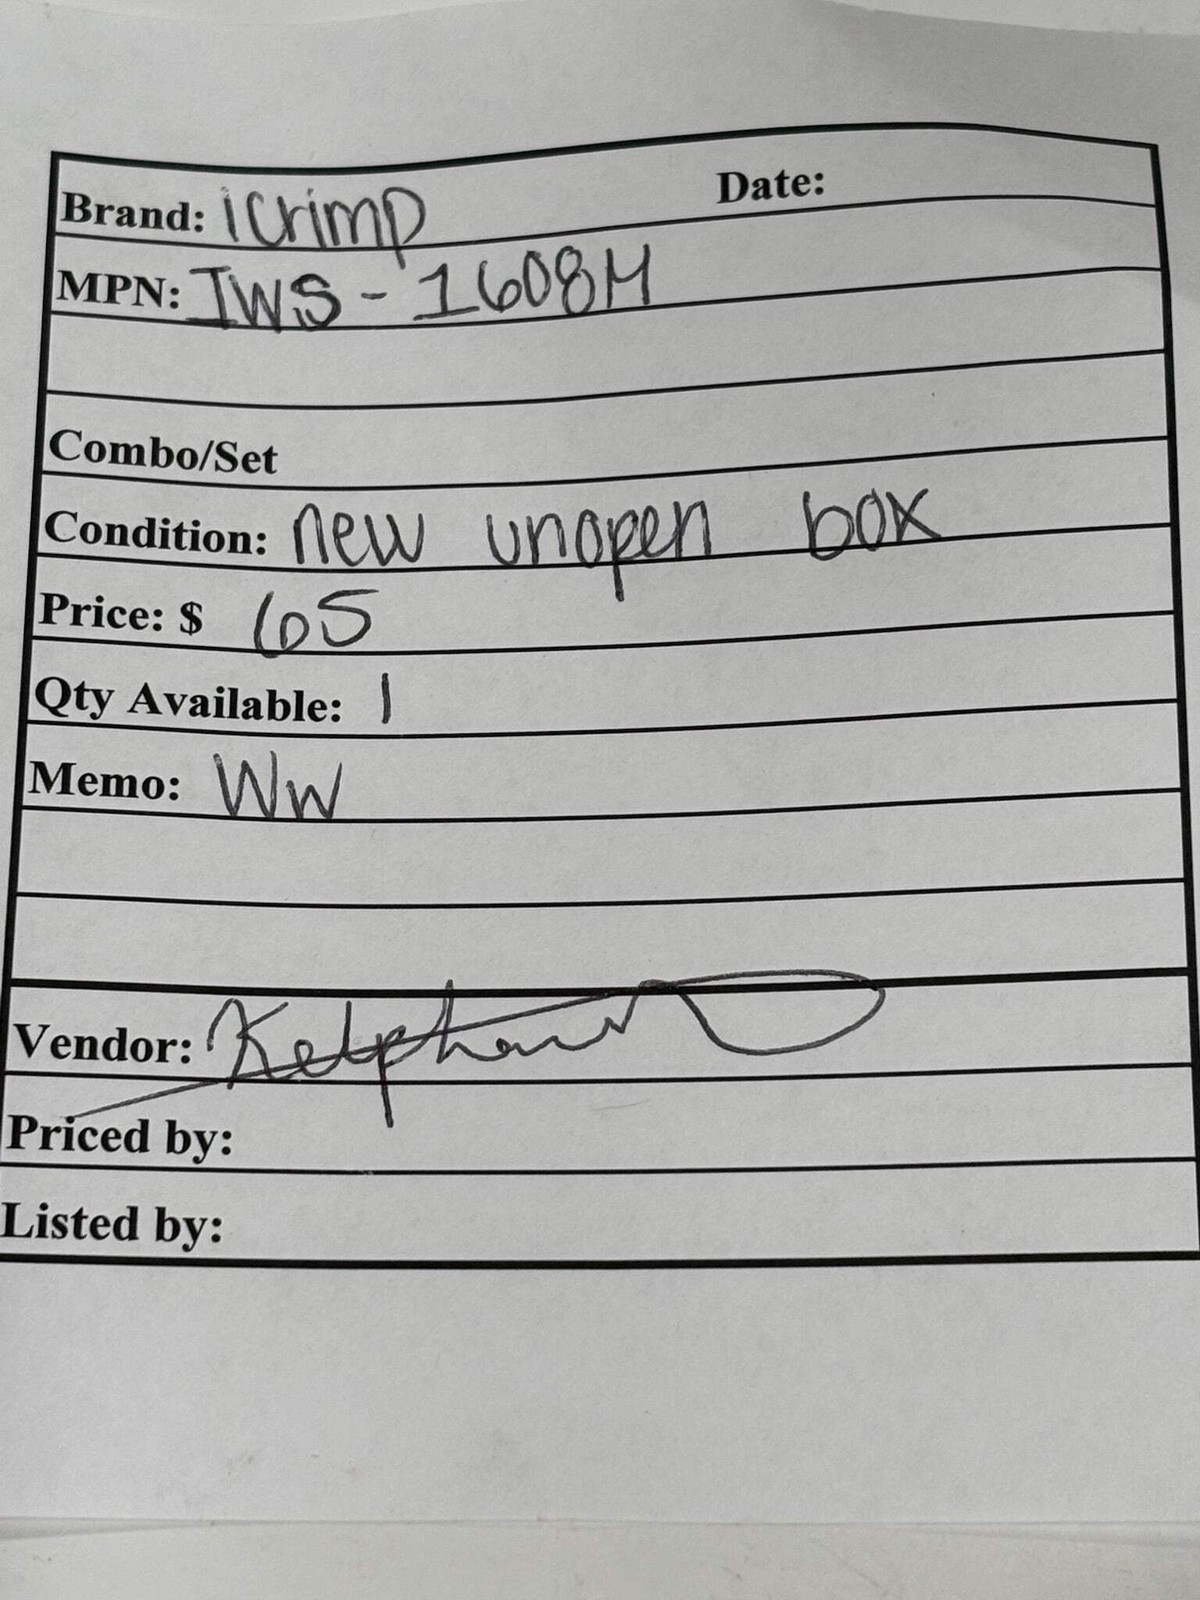 Brand: iCrimp Date:
MPN: IWS-1608M
Combo/Set
Condition: new unopen box
Price: $ 65
Qty Available: 1
Memo: WW
Vendor:
Priced by:
Listed by: